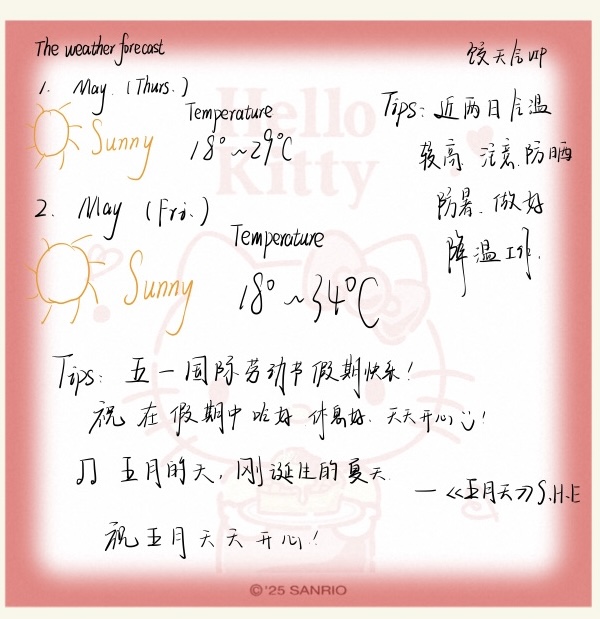 The weather forecast
1. May. (Thurs.)
Sunny
Temperature
18°~29℃
Tips: 近两日气温
较高 注意防晒
防暑、做好
降温工作.
2. May (Fri.)
Sunny
Temperature
18°~34℃
Tips: 五一国际劳动节假期快乐!
祝 在假期中吃好 休息好、天天开心!
五月的天, 刚诞生的夏天
—《五月天》S.H.E
祝五月天天开心!
Hello
Kitty
©'25 SANRIO